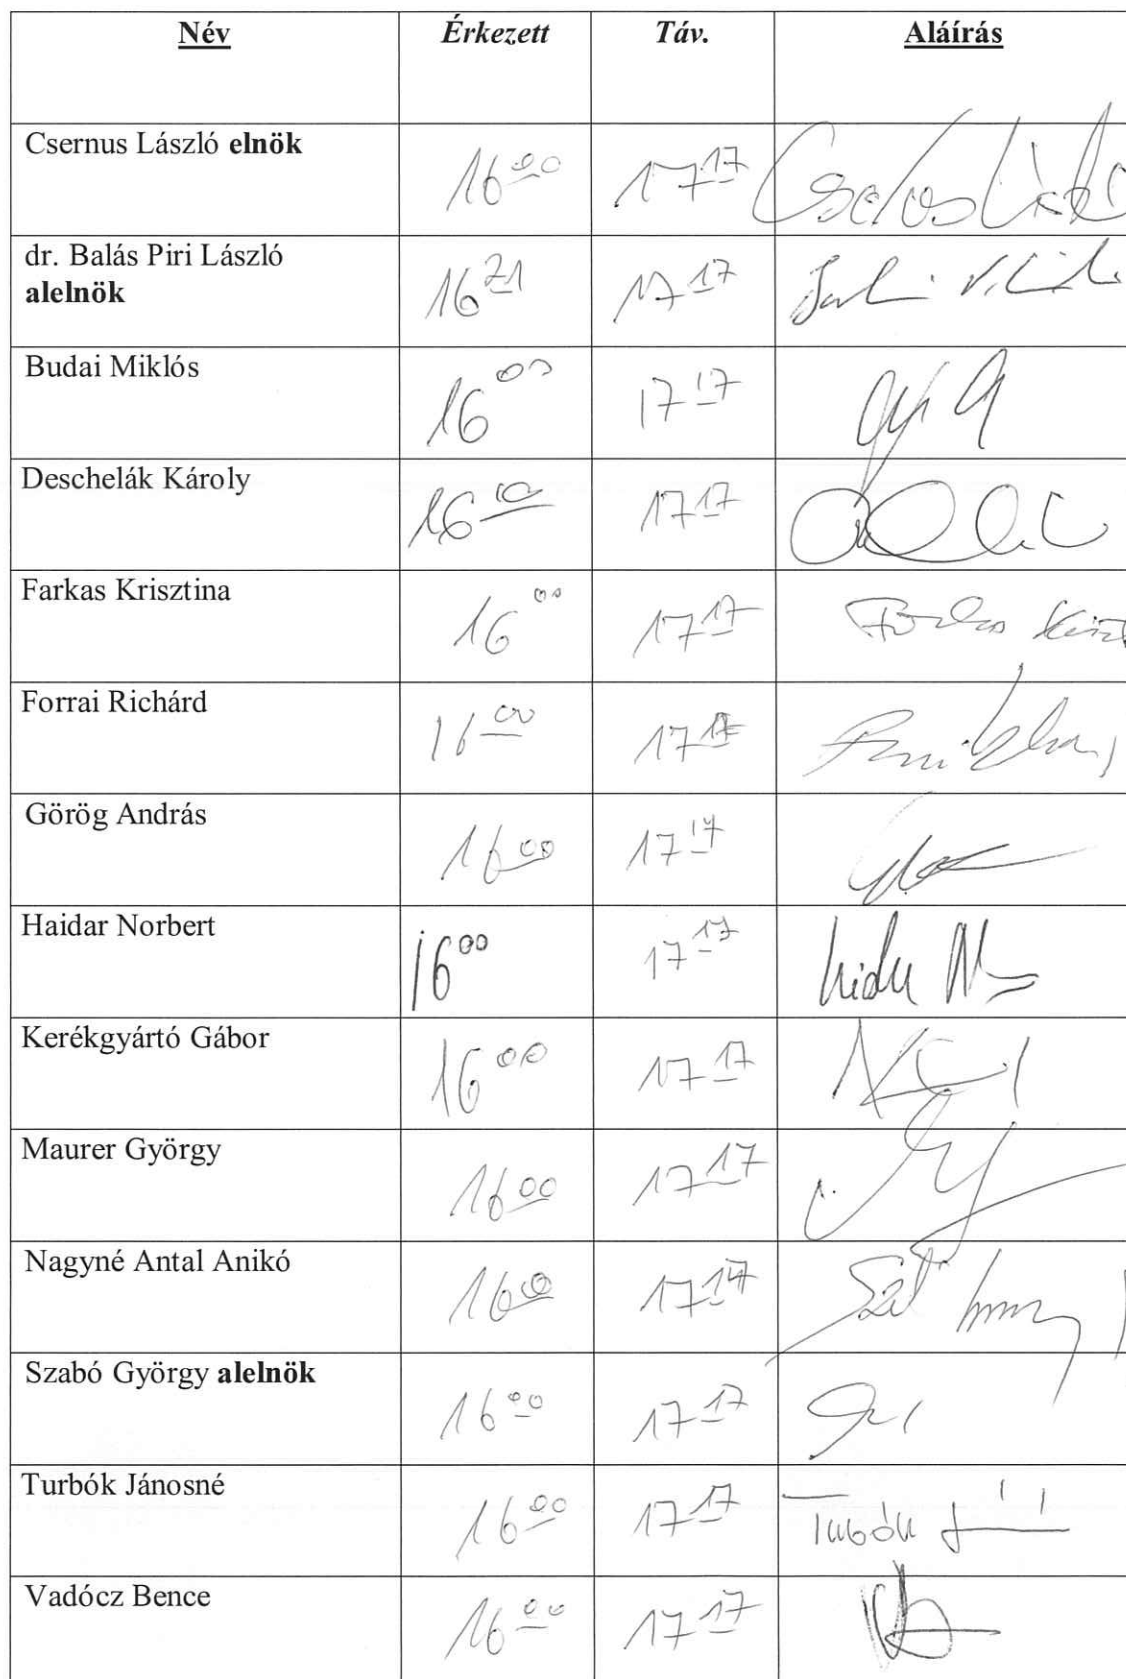 Név Érkezett Táv. Aláírás
Csernus László elnök 16 00 17 17
dr. Balás Piri László
alelnök 16 21 17 17
Budai Miklós 16 00 17 17
Deschelák Károly 16 17 17
Farkas Krisztina 16 00 17 17 Farkas
Forrai Richárd 16 00 17 17
Görög András 16 00 17 17
Haidar Norbert 16 00 17 17
Kerékgyártó Gábor 16 00 17 17
Maurer György 16 00 17 17
Nagyné Antal Anikó 16 00 17 17
Szabó György alelnök 16 00 17 17
Turbók Jánosné 16 00 17 17 Turbók
Vadócz Bence 16 00 17 17